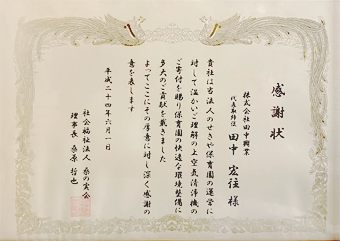 感謝状
株式会社田中興業
代表取締役 田中 宏征 様
貴社は当法人のせきや保育園の運営に
対して温かいご理解の上空気清浄機の
ご寄付を賜り保育園の快適な環境整備に
多大のご貢献を戴きました
よってここにその厚意に対し深く感謝の
意を表します
平成二十四年六月一日
社会福祉法人 桑の実会
理事長 桑原 哲也